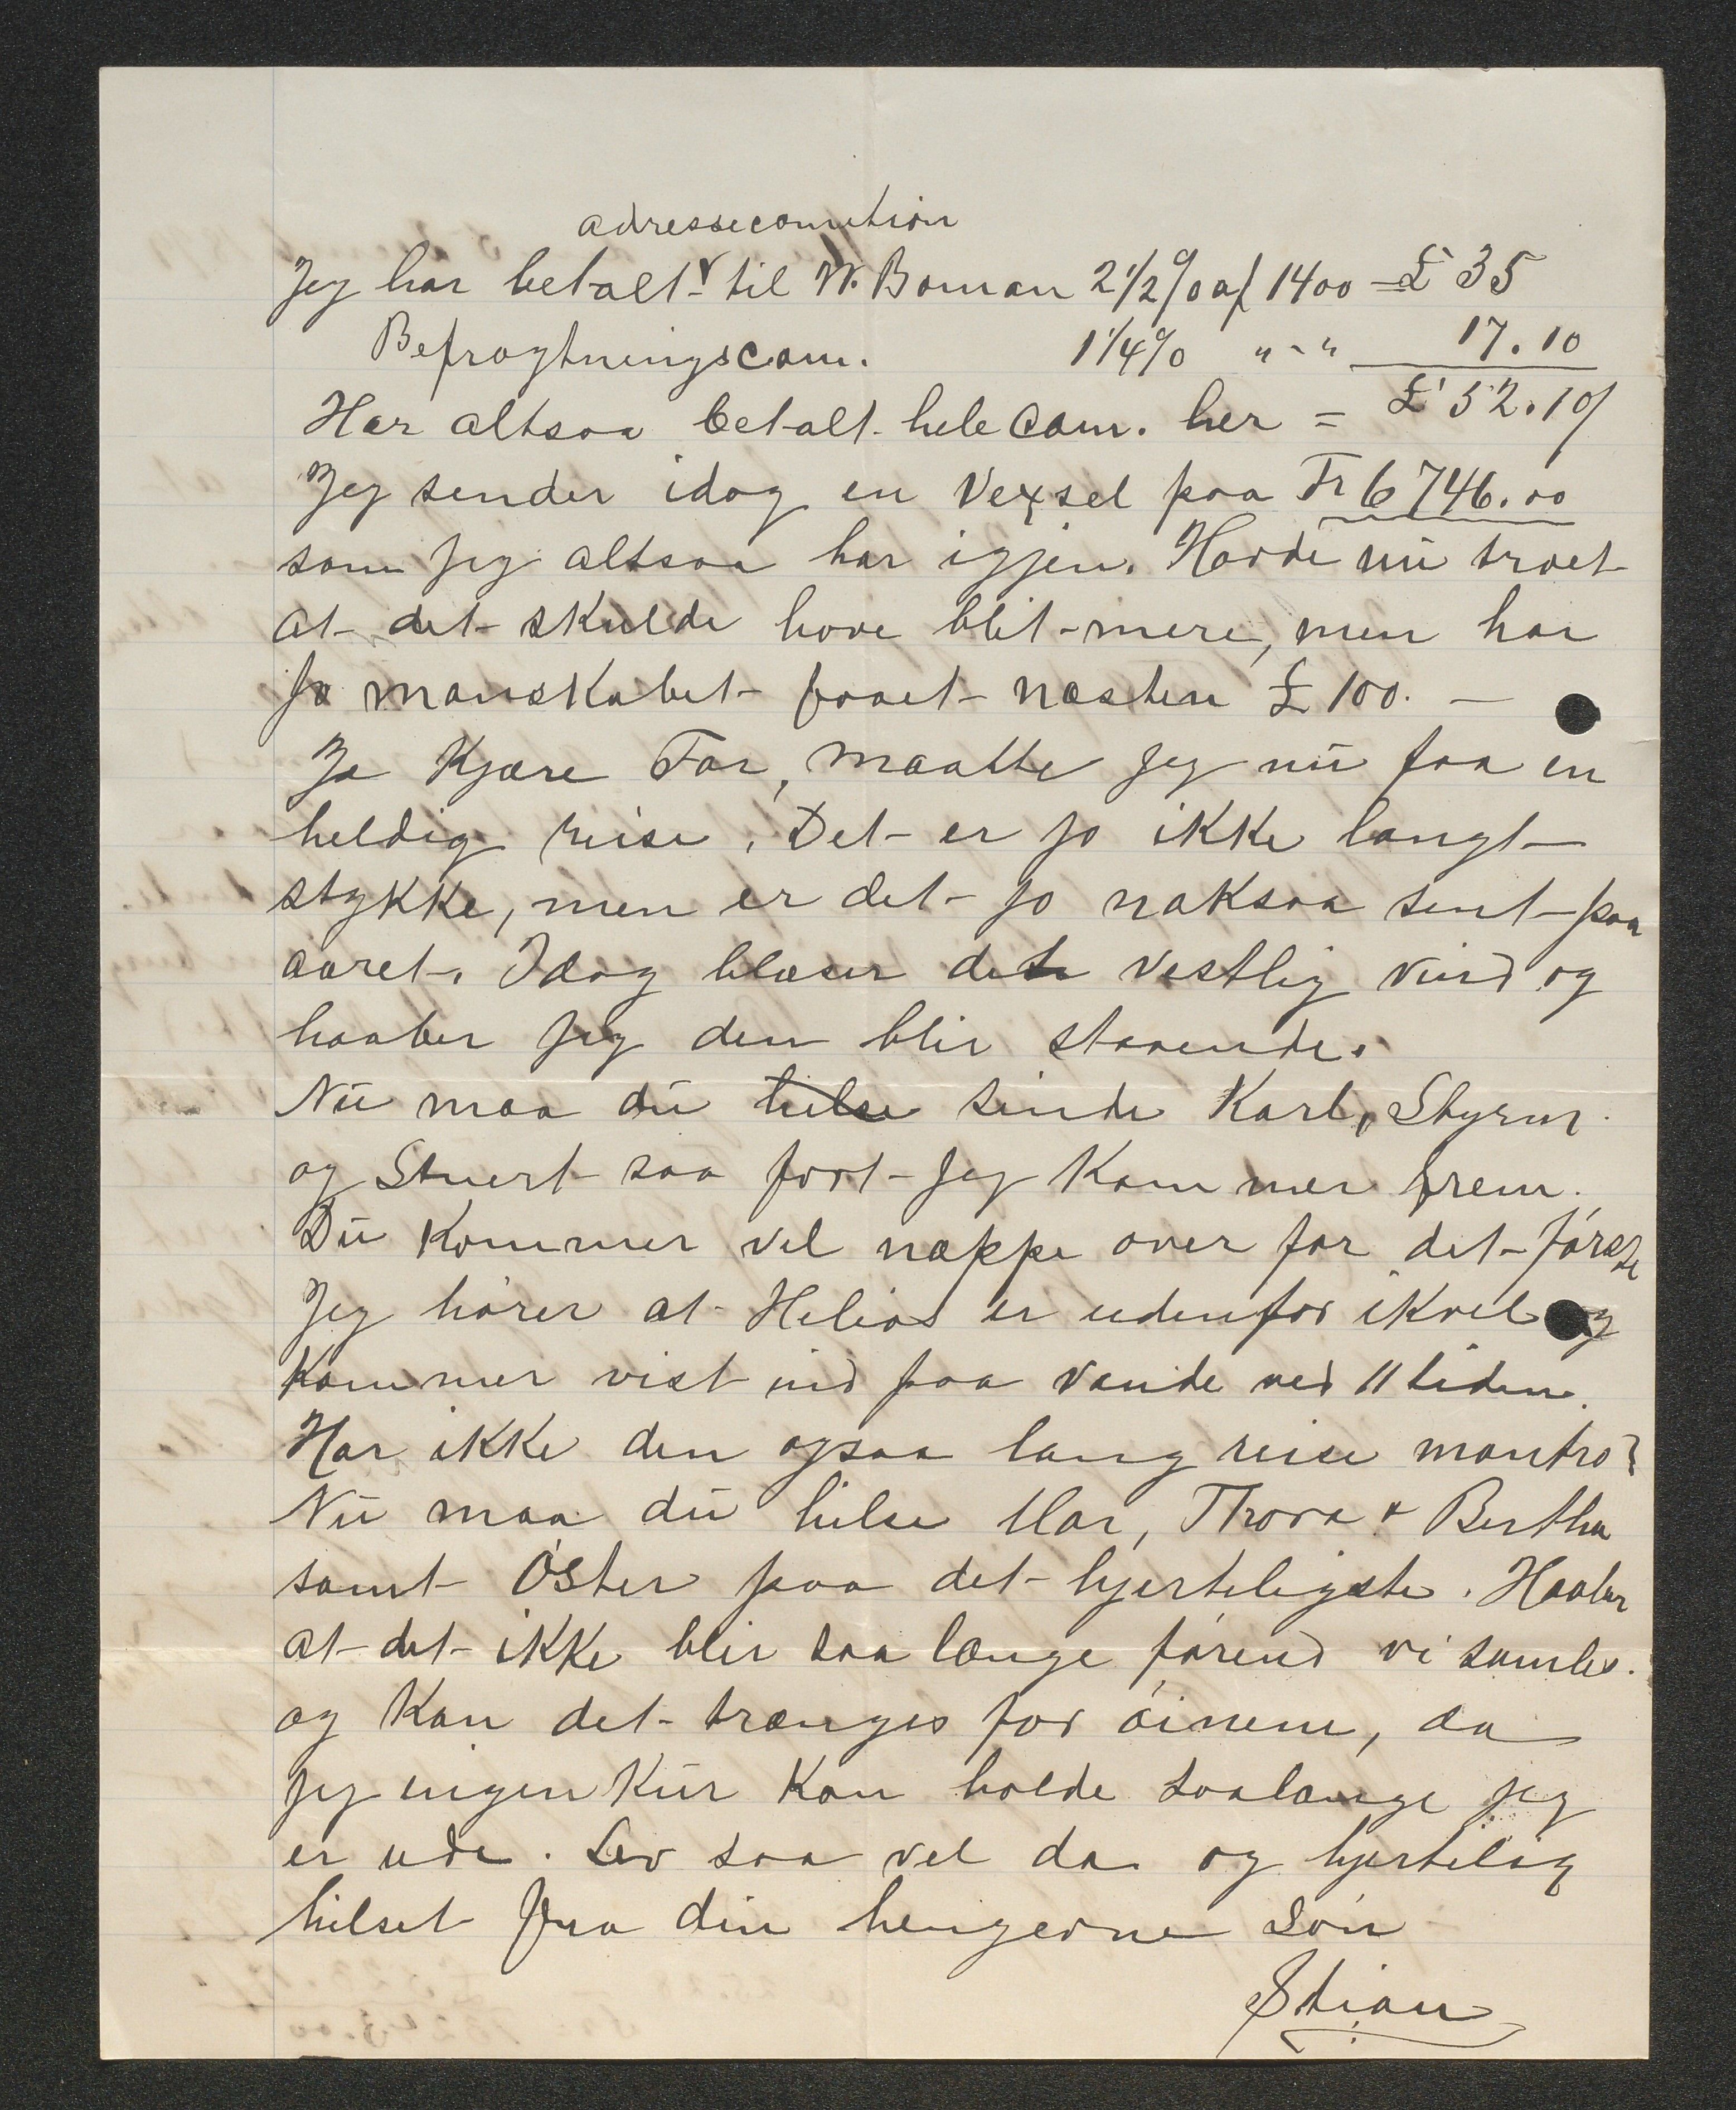 adressecomition
Jeg har betalt til W. Boman 2 1/2 % af 1400 = £ 35
Befragtningscom. 1 1/4 % " - " 17.10
Har altsaa betalt hele Com. her = £ 52.10/
Jeg sender idag en Vexsel paa Fr 6746.00
som jeg altsaa har igjen. Havde nu troet
at det skulde have blit mere, men har
jo manskabet faaet næsten £ 100. —
Ja Kjære Far, maatte jeg nu faa en
heldig reise. Det er jo ikke langt
stykke, men er det jo noksaa sent paa
aaret. Idag blæser det vestlig vind og
haaber jeg den blir staaende.
Nu maa du hilse sende Karl, Styrm.
og Stuert saa fort jeg kommer frem.
Du kommer vel neppe over for det første
Jeg hører at Helios er udenfor ikvel og
kommer vist ind paa vande ved 11 tiden.
Har ikke den ogsaa lang reise montro?
Nu maa du hilse Mor, Thora & Bertha
samt Øster paa det hjerteligste. Haaber
at det ikke blir saa længe førend vi samles.
og kan det trænges for øinene, da
jeg ingen Kur kan holde saalænge jeg
er ude. Lev saa vel da og hjertelig
hilset fra din hengivne Søn
Stian